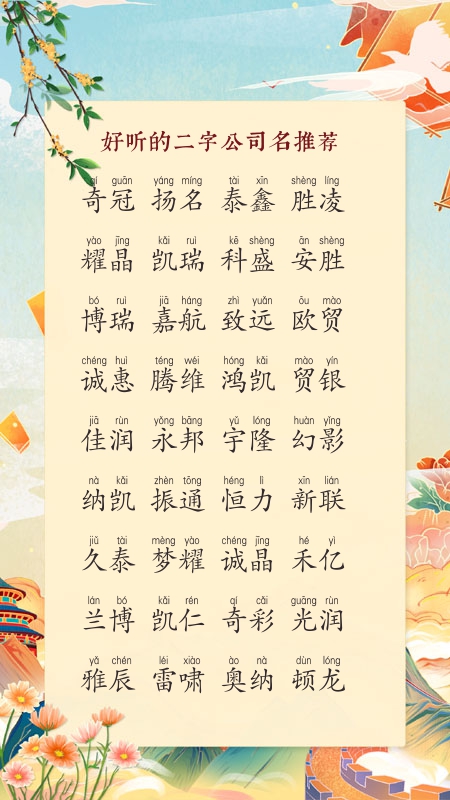 好听的二字公司名推荐
qí guān yáng míng tài xīn shèng líng
奇冠 扬名 泰鑫 胜凌
yào jīng kǎi ruì kē shèng ān shèng
耀晶 凯瑞 科盛 安胜
bó ruì jiā háng zhì yuǎn ōu mào
博瑞 嘉航 致远 欧贸
chéng huì téng wéi hóng kǎi mào yín
诚惠 腾维 鸿凯 贸银
jiā rùn yǒng bāng yǔ lóng huàn yǐng
佳润 永邦 宇隆 幻影
nà kǎi zhèn tōng héng lì xīn lián
纳凯 振通 恒力 新联
jiǔ tài mèng yào chéng jīng hé yì
久泰 梦耀 诚晶 禾亿
lán bó kǎi rén qí cǎi guāng rùn
兰博 凯仁 奇彩 光润
yǎ chén léi xiào ào nà dùn lóng
雅辰 雷啸 奥纳 顿龙